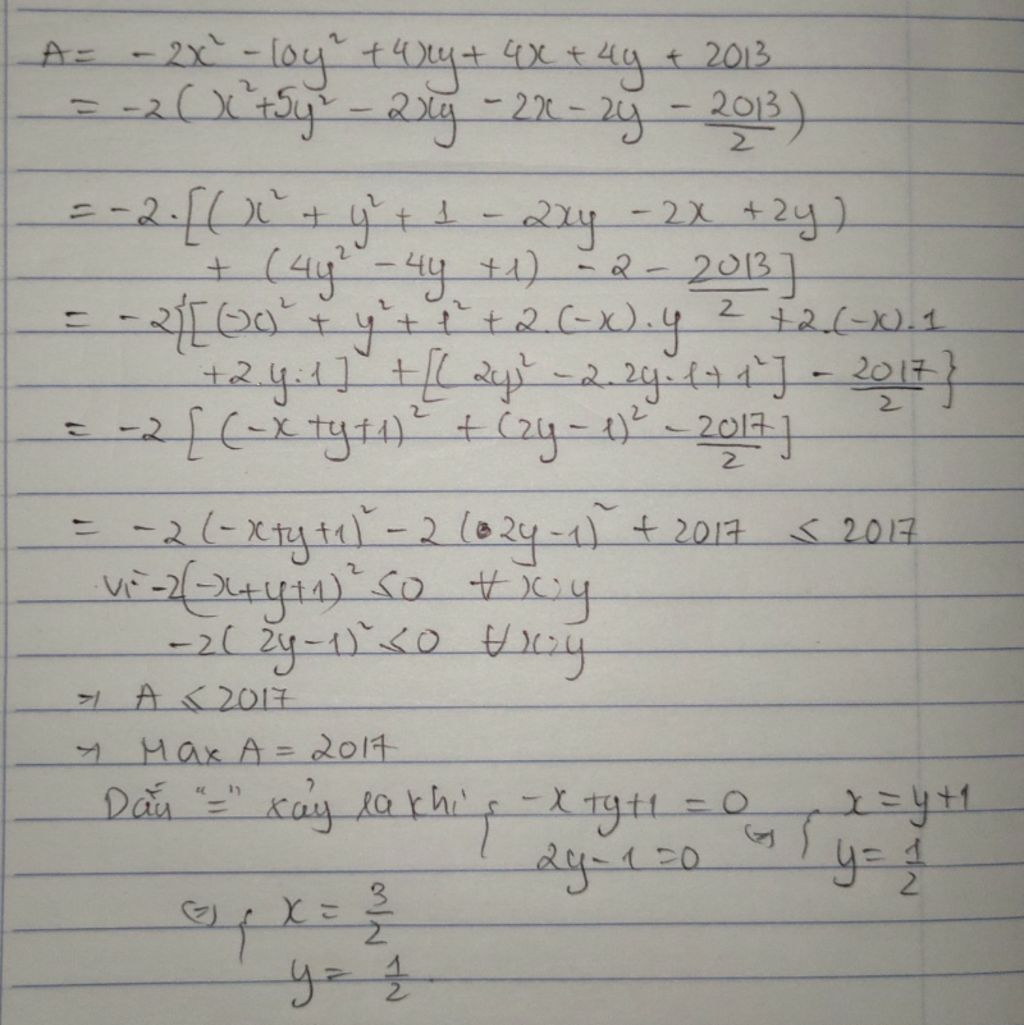 A = -2x² - 10y² + 4xy + 4x + 4y + 2013
= -2 ( x² + 5y² - 2xy - 2x - 2y - 2013/2 )
= -2 . [ ( x² + y² + 1 - 2xy - 2x + 2y )
+ ( 4y² - 4y + 1 ) - 2 - 2013/2 ]
= -2 { [ (-x)² + y² + 1² + 2.(-x).y + 2.(-x).1
+ 2.y.1 ] + [ ( 2y )² - 2.2y.1 + 1² ] - 2017/2 }
= -2 [ (-x + y + 1)² + (2y - 1)² - 2017/2 ]
= -2 (-x + y + 1)² - 2 ( 2y - 1)² + 2017 ≤ 2017
Vì -2(-x + y + 1)² ≤ 0 ∀ x; y
-2( 2y - 1)² ≤ 0 ∀ x; y
⇒ A ≤ 2017
⇒ Max A = 2017
Dấu "=" xảy ra khi { -x + y + 1 = 0 ⇔ { x = y + 1
2y - 1 = 0 y = 1/2
⇔ { x = 3/2
y = 1/2